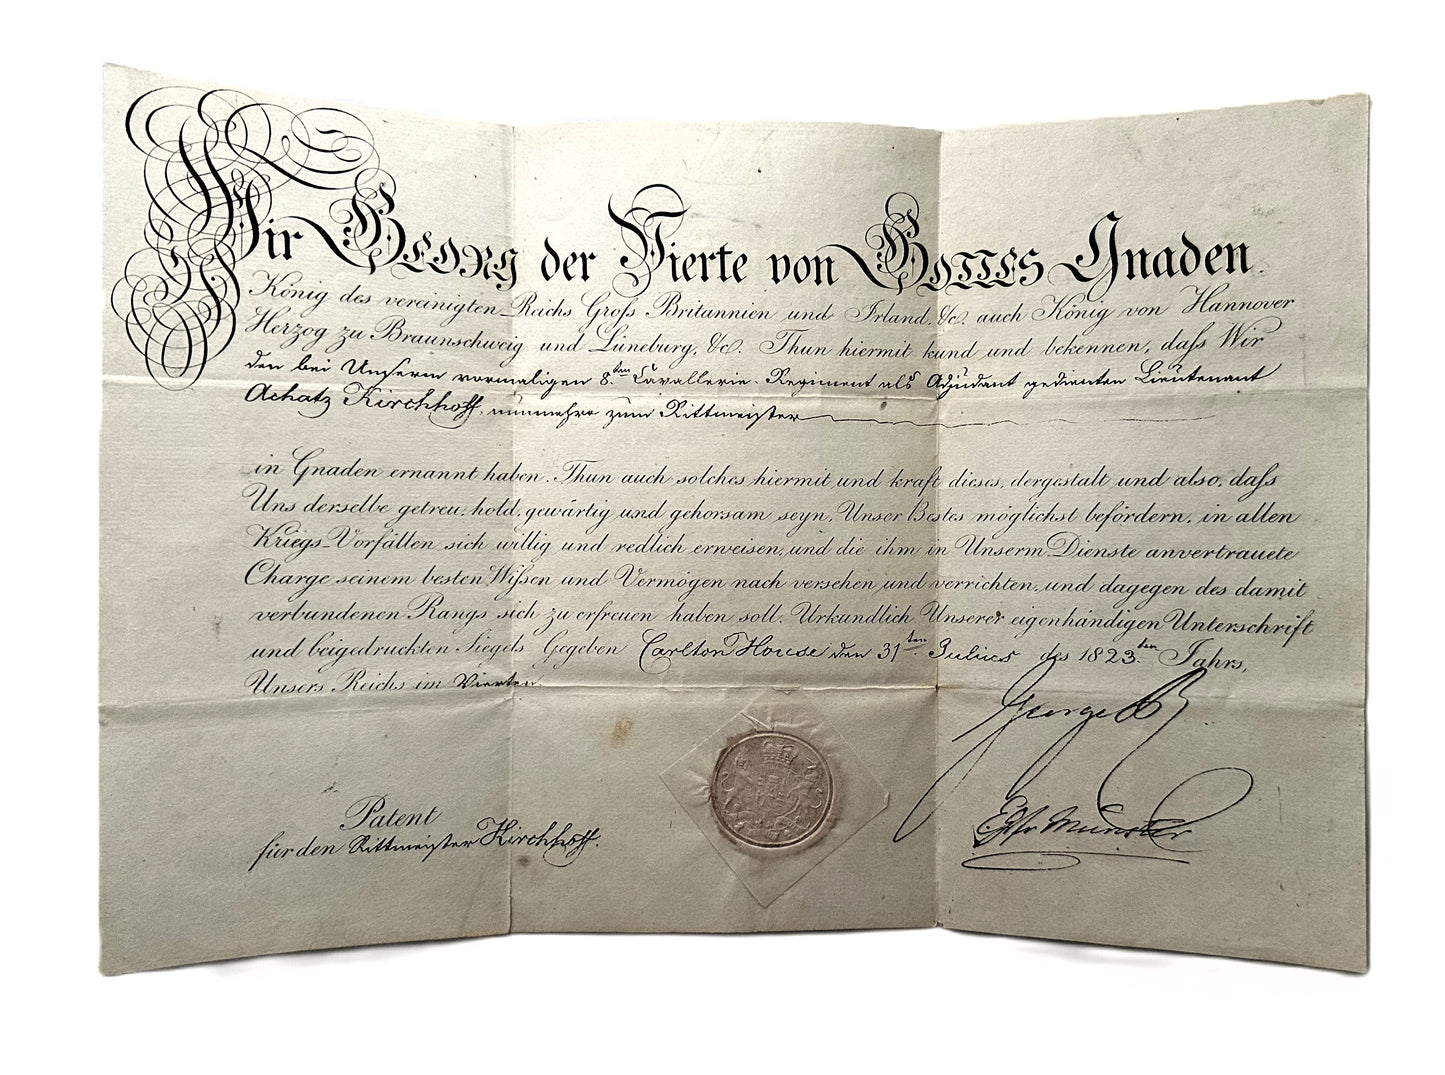 Wir Georg der Vierte von Gottes Gnaden.
König des vereinigten Reichs Groſs Britannien und Irland, &c. auch König von Hannover
Herzog zu Braunschweig und Lüneburg, &c. Thun hiermit kund und bekennen, daſs Wir
den bei Unserm vormaligen 8.ten Cavallerie-Regiment als Adjudant gedienten Lieutenant
Achatz Kirchhoff, nunmehro zum Rittmeister
in Gnaden ernannt haben. Thun auch solches hiermit und kraft dieses, dergestalt und also, daſs
Uns derselbe getreu, hold, gewärtig und gehorsam seyn, Unser Bestes möglichst befördern, in allen
Kriegs-Vorfällen sich willig und redlich erweisen, und die ihm in Unserm Dienste anvertrauete
Charge seinem besten Wiſsen und Vermögen nach versehen und verrichten, und dagegen des damit
verbundenen Rangs sich zu erfreuen haben soll. Urkundlich Unserer eigenhändigen Unterschrift
und beigedruckten Siegels Gegeben Carlton House den 31.ten Julius des 1823.ten Jahrs,
Unsers Reichs im Vierten.
George R
Patent
für den Rittmeister Kirchhoff.
Munster